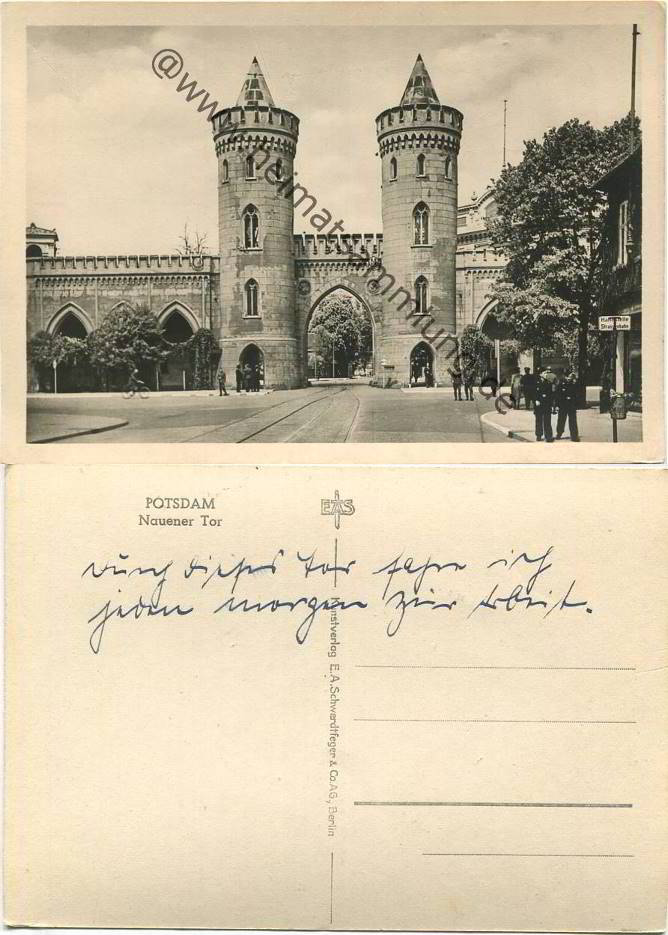 @www.heimatsammlung.de
Haltestelle
Strassenbahn
POTSDAM
Nauener Tor
EAS
Durch dieses Tor fahre ich
jeden morgen zur Arbeit.
Kunstverlag E.A.Schwerdtfeger & Co.AG., Berlin